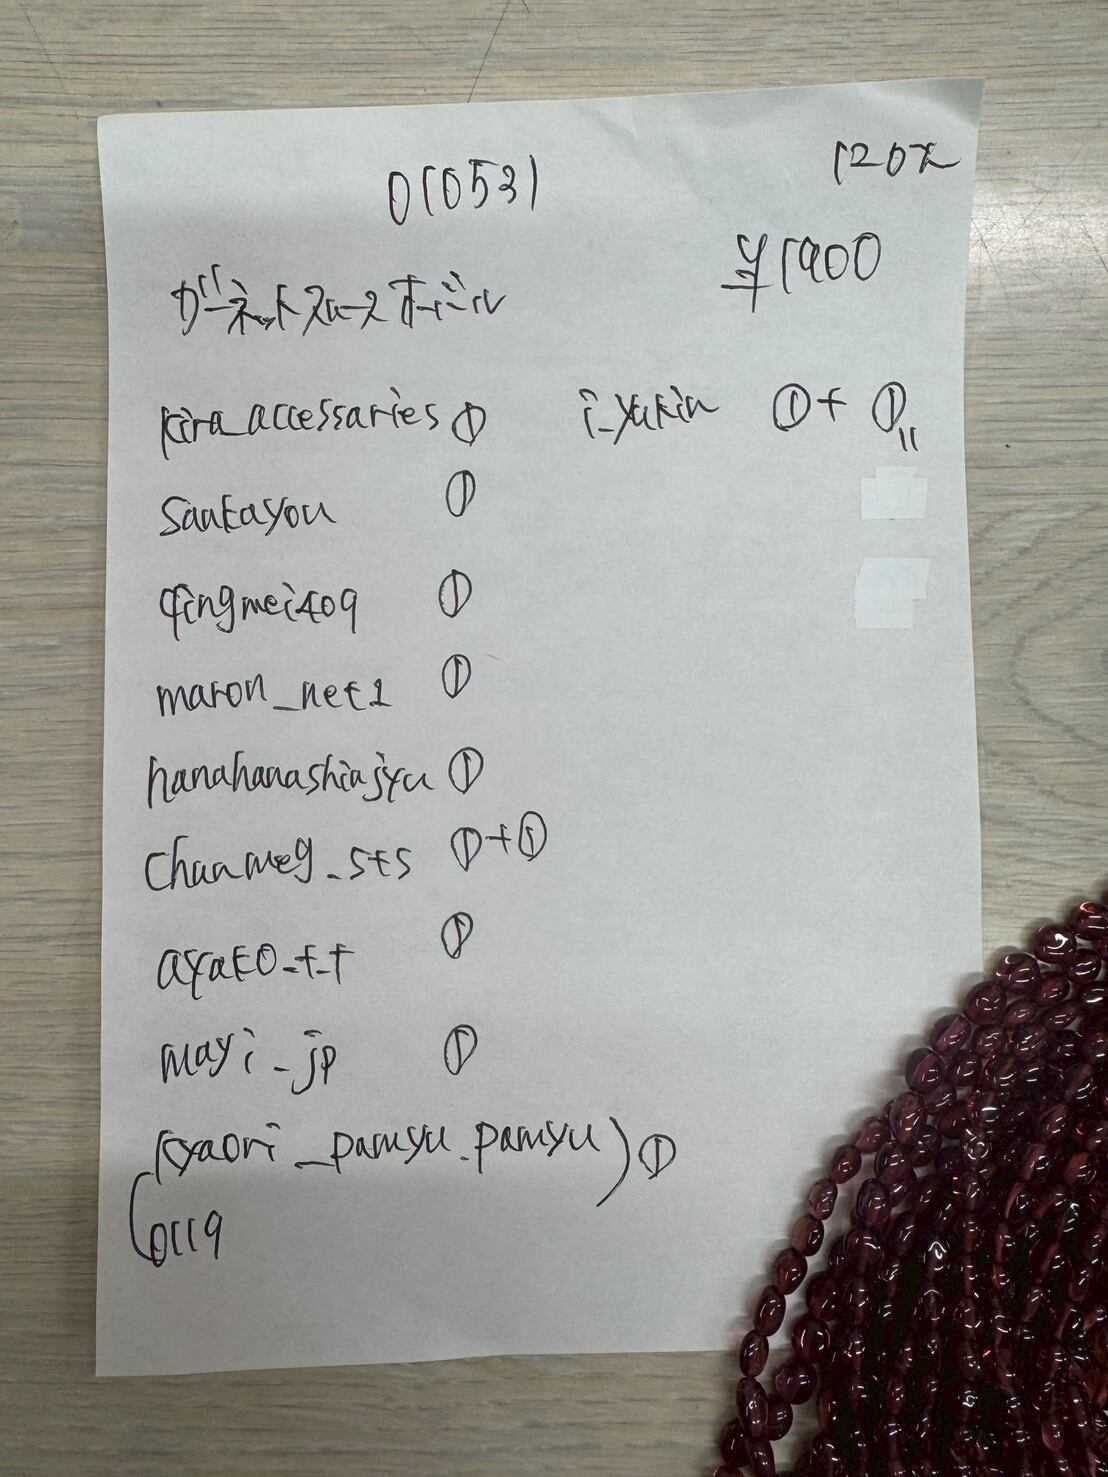 010531
120x
¥1900
ガーネットスムースオーバル
kira_accessaries ①
i_yukin ①+①11
santayou ①
qingmei409 ①
maron_net1 ①
hanahanashinjyu ①
chuumeg_sts ①+①
ayato_t_t ①
mayi_jp ①
kyaori_pamyu.pamyu ①
0119